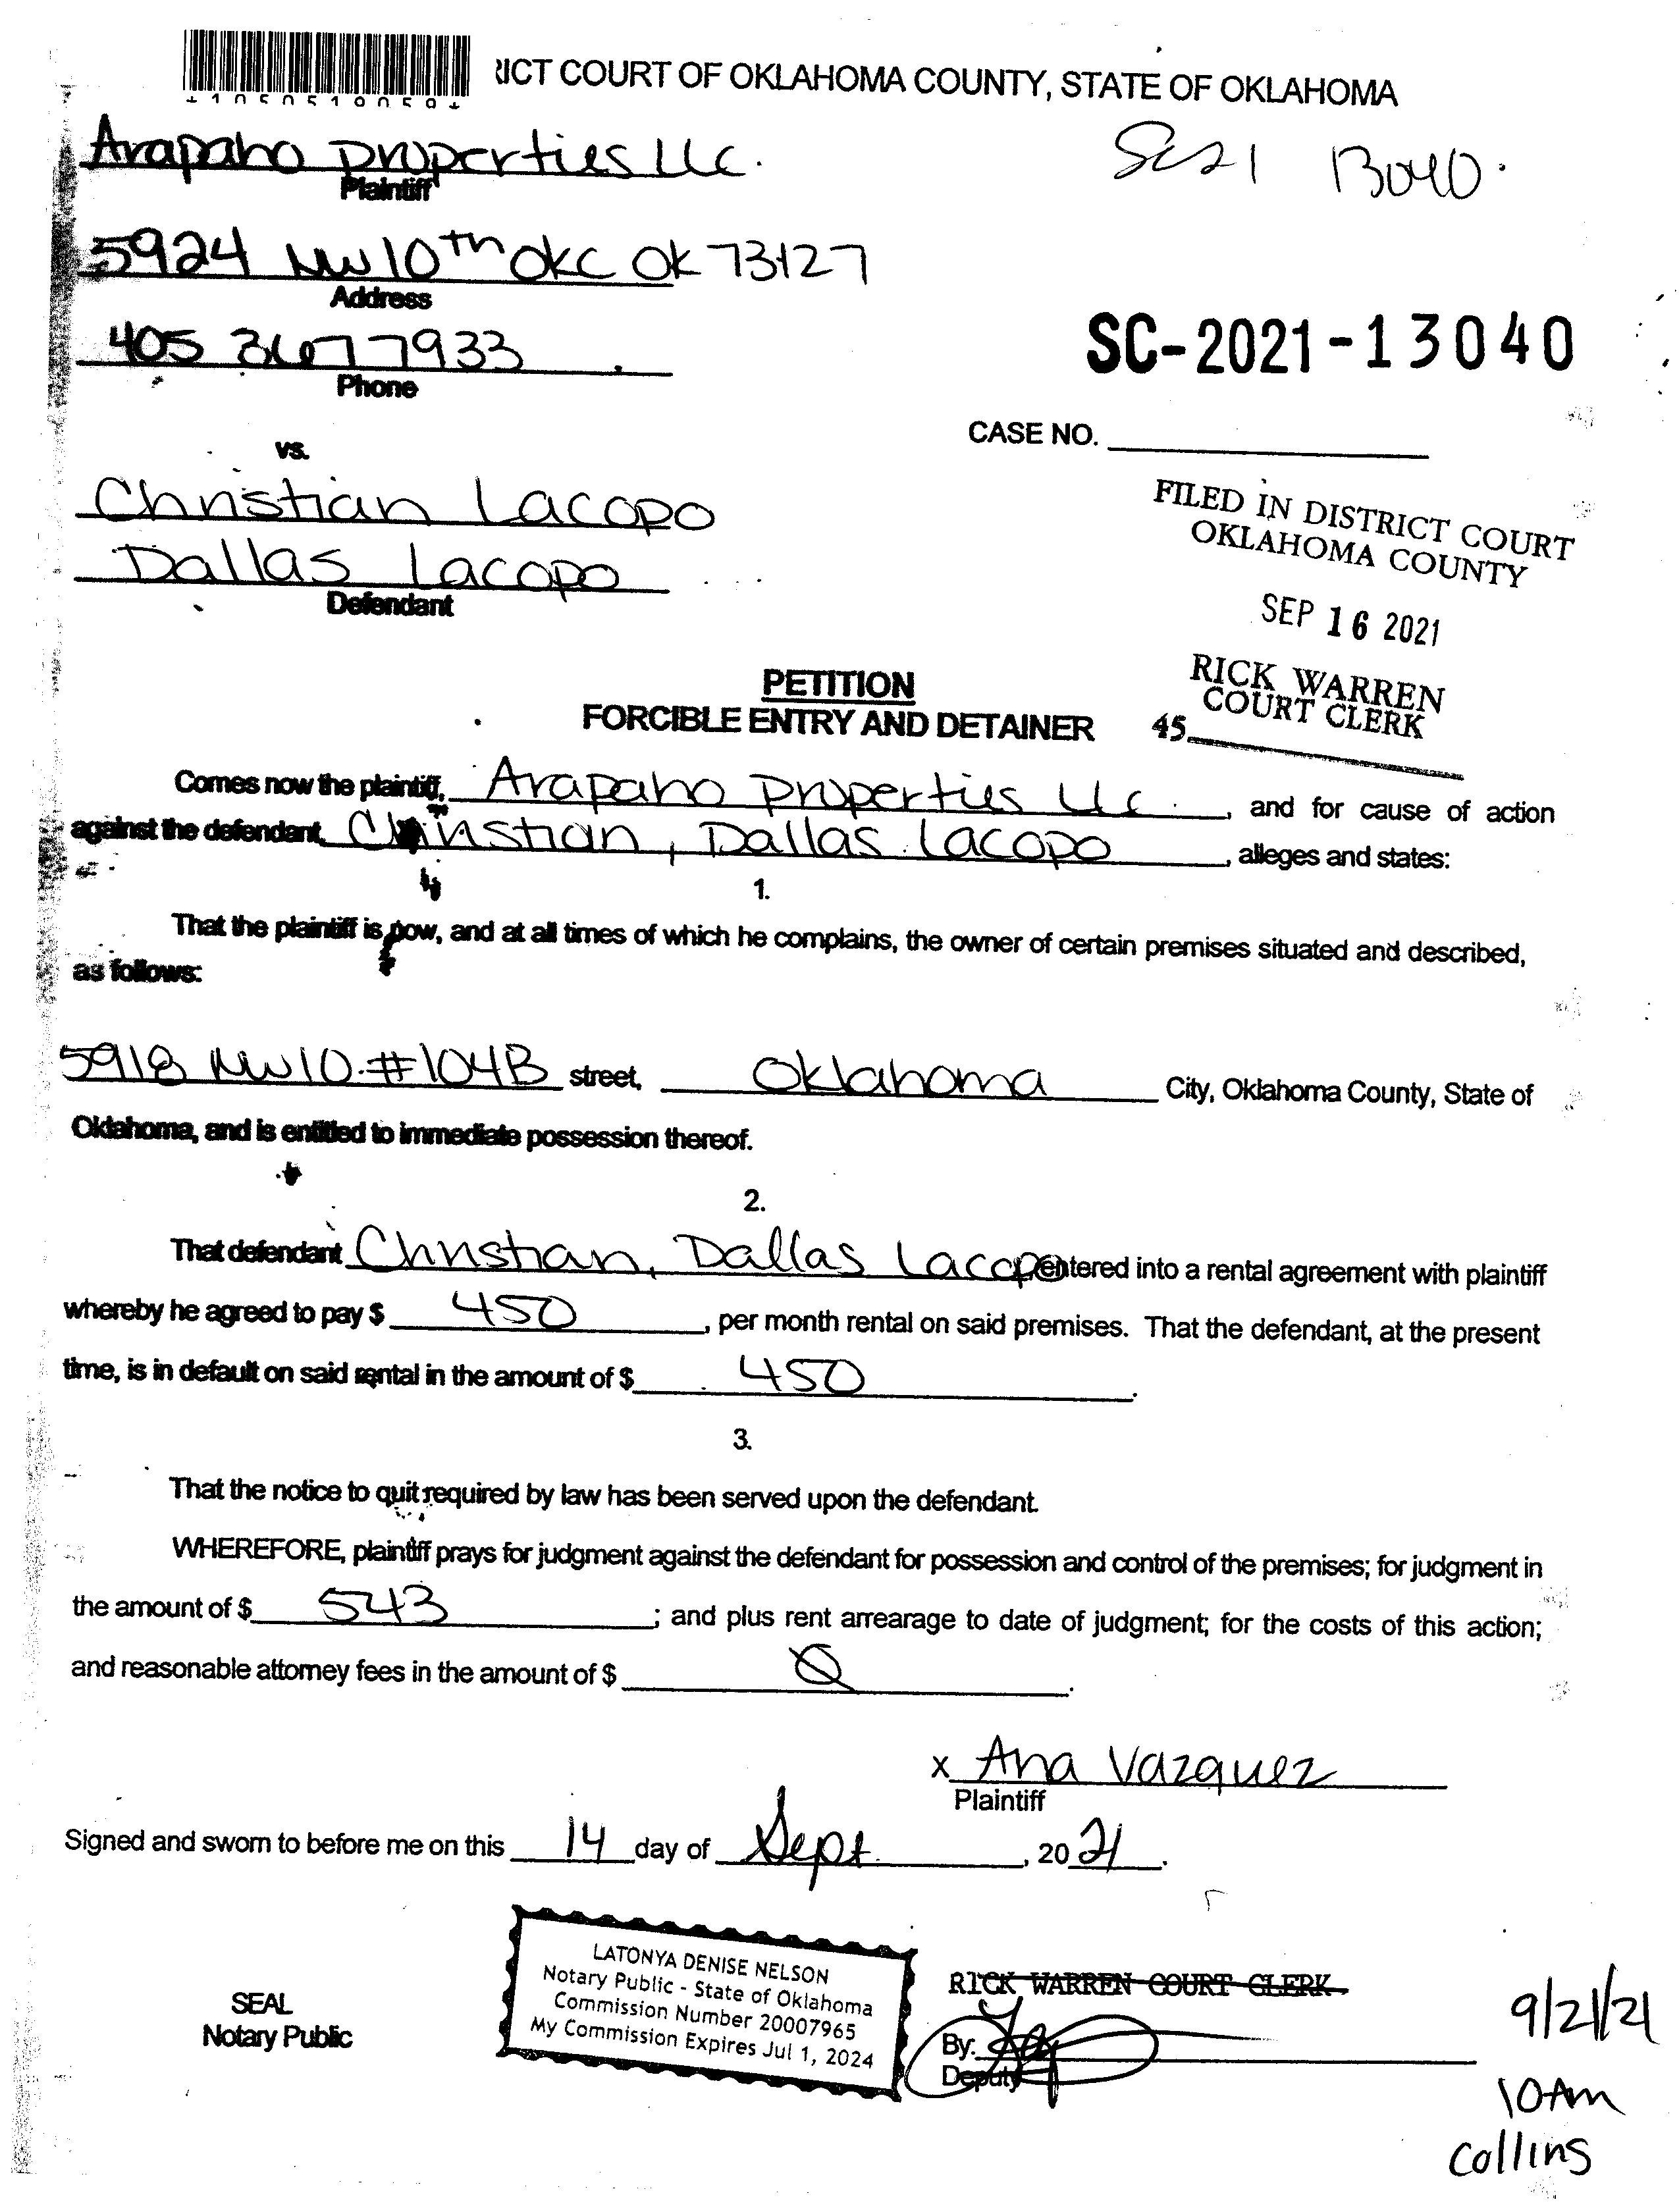 ICT COURT OF OKLAHOMA COUNTY, STATE OF OKLAHOMA
Arapaho Properties LLC.
Plaintiff
SC21 13040.
5924 NW 10th OKC OK 73127
Address
405 367 7933
Phone
SC-2021-13040
CASE NO.
vs.
Christian Lacopo
Dallas Lacopo
Defendant
FILED IN DISTRICT COURT
OKLAHOMA COUNTY
SEP 16 2021
RICK WARREN
COURT CLERK
45
PETITION
FORCIBLE ENTRY AND DETAINER
Comes now the plaintiff, Arapaho Properties LLC., and for cause of action
against the defendant, Christian, Dallas Lacopo, alleges and states:
1.
That the plaintiff is now, and at all times of which he complains, the owner of certain premises situated and described,
as follows:
5918 NW 10 #104B street, Oklahoma City, Oklahoma County, State of
Oklahoma, and is entitled to immediate possession thereof.
2.
That defendant Christian, Dallas Lacopo entered into a rental agreement with plaintiff
whereby he agreed to pay $ 450, per month rental on said premises. That the defendant, at the present
time, is in default on said rental in the amount of $ 450.
3.
That the notice to quit required by law has been served upon the defendant.
WHEREFORE, plaintiff prays for judgment against the defendant for possession and control of the premises; for judgment in
the amount of $ 543; and plus rent arrearage to date of judgment; for the costs of this action;
and reasonable attorney fees in the amount of $ 0.
x Ana Vazquez
Plaintiff
Signed and sworn to before me on this 14 day of Sept., 2021.
SEAL
Notary Public
LATONYA DENISE NELSON
Notary Public - State of Oklahoma
Commission Number 20007965
My Commission Expires Jul 1, 2024
RICK WARREN COURT CLERK
By:
Deputy
9/21/21
10 Am
Collins